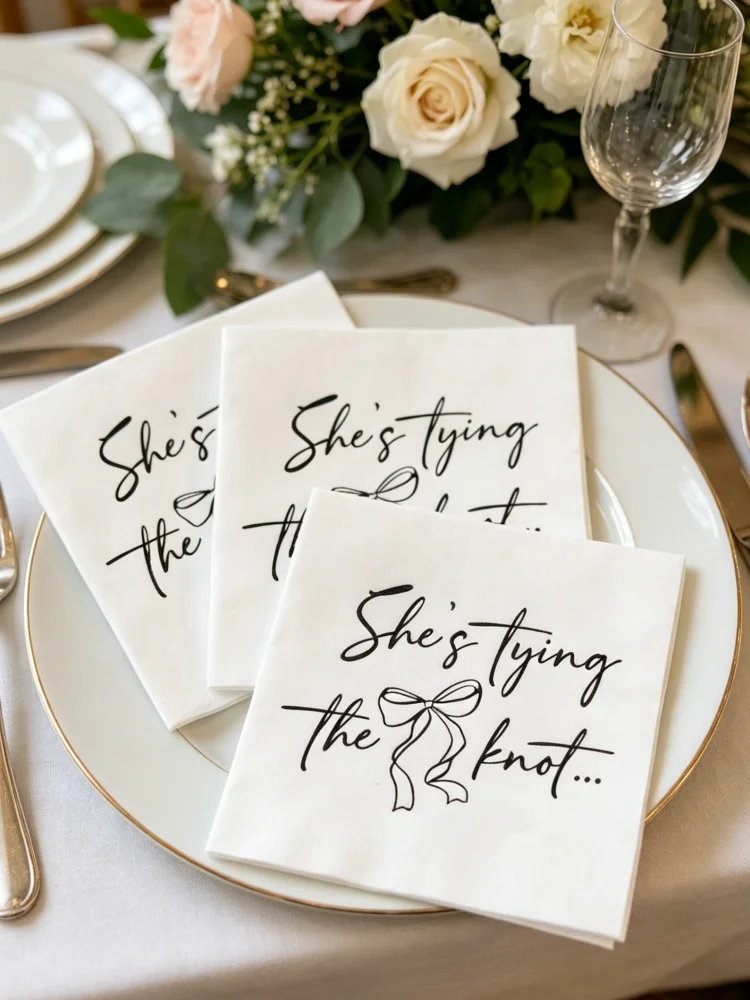 She's
the
She's tying
the knot...
She's tying
the knot...